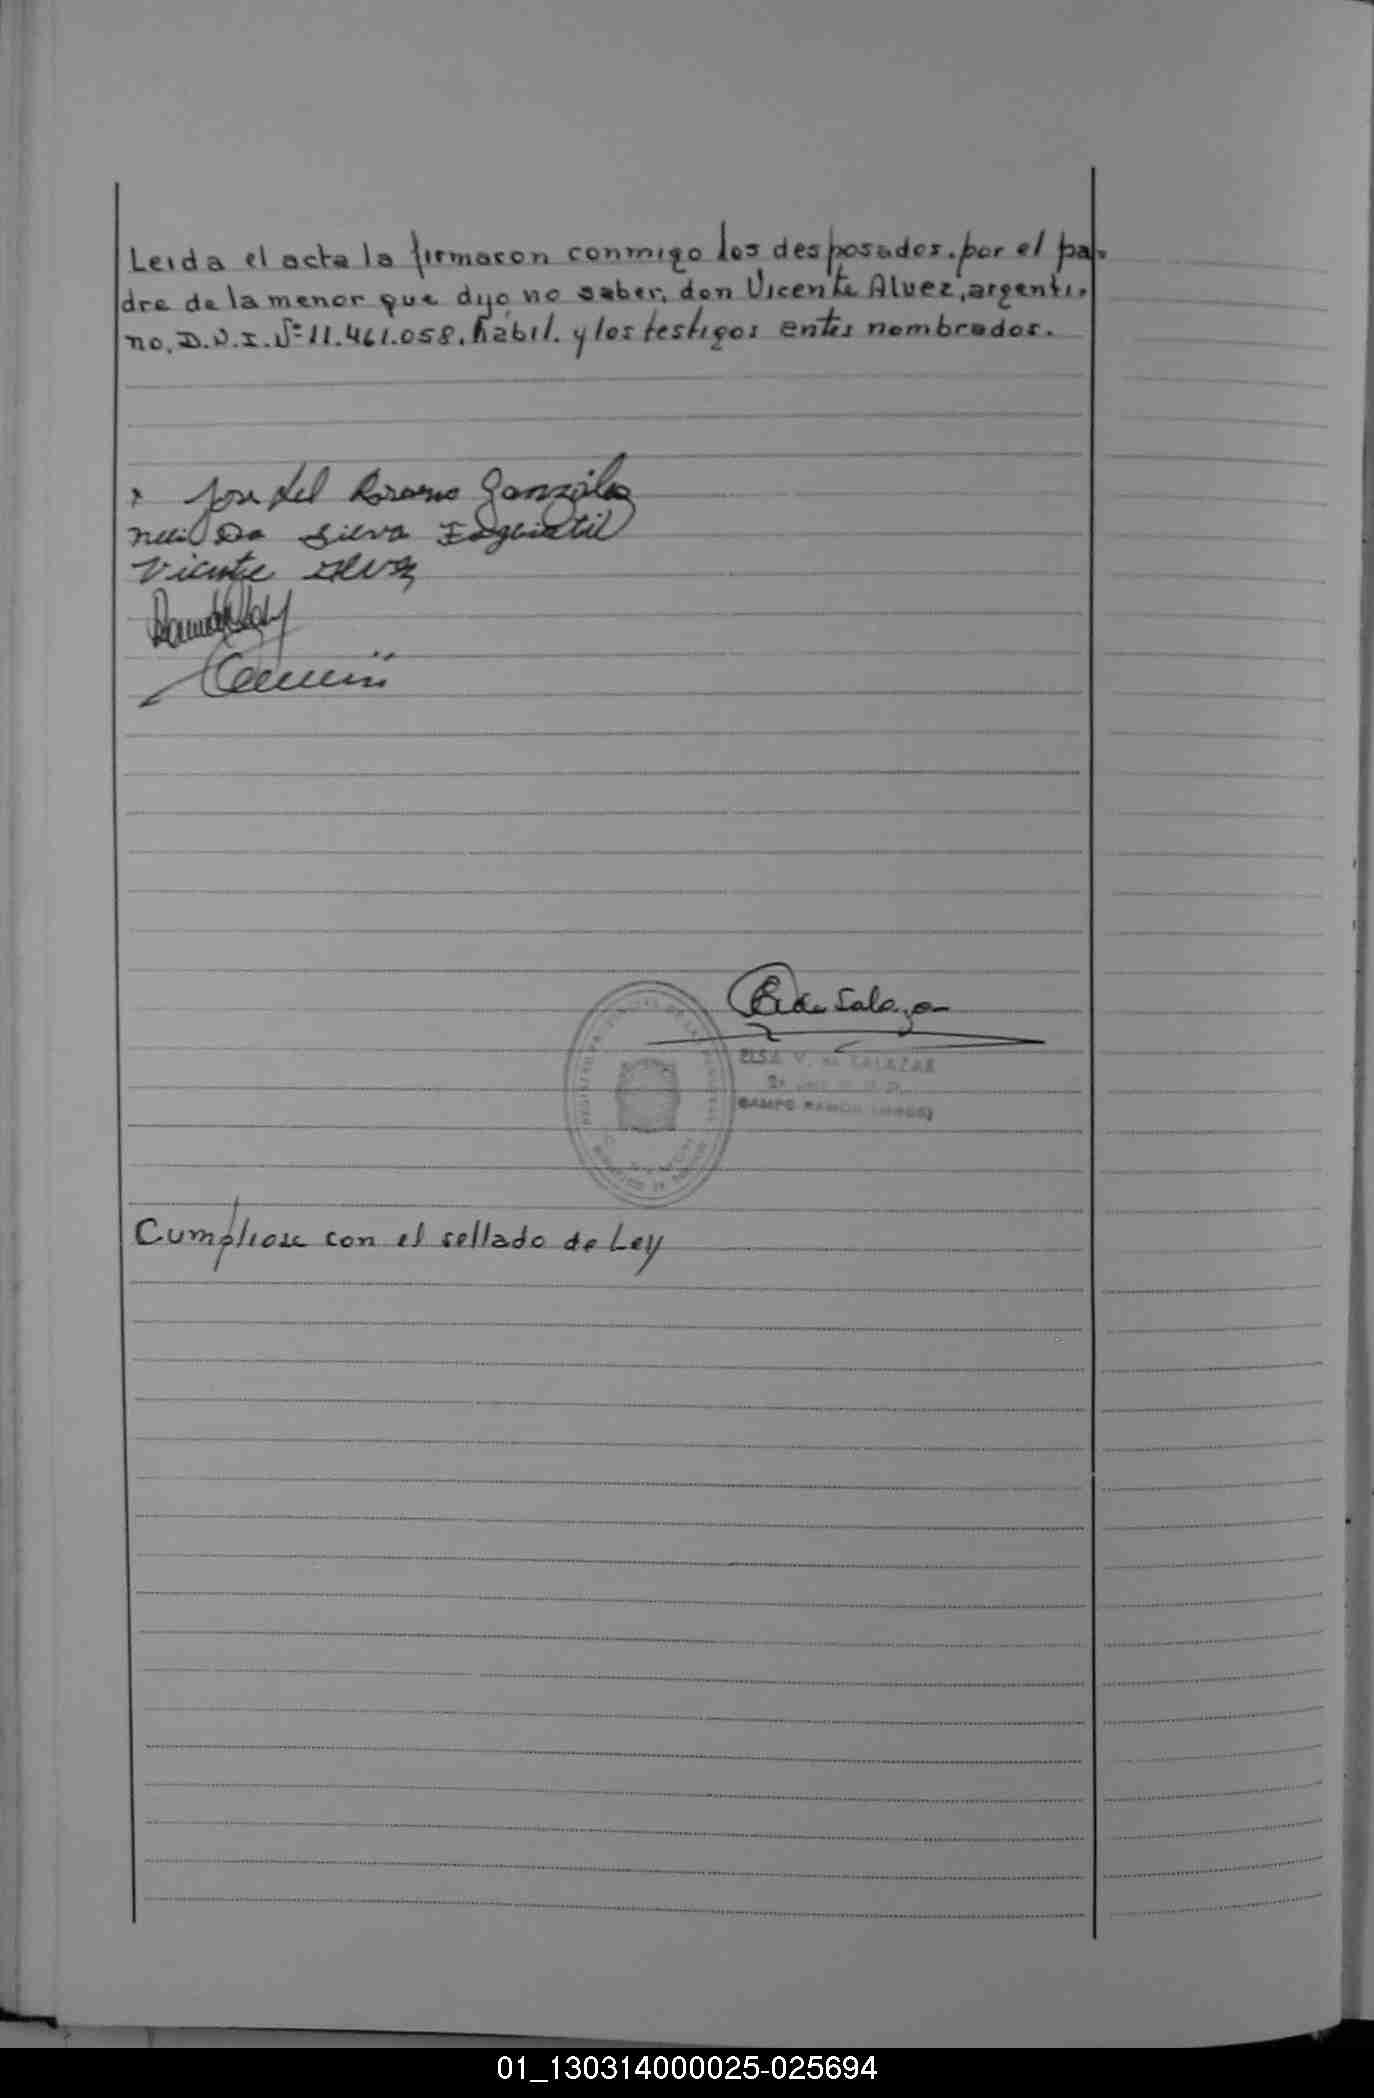 Leida el acta la firmaron conmigo los desposados. por el pa-
dre de la menor que dijo no saber, don Vicente Alvez, argenti-
no, D.N.I. Nº 11.461.058, hábil. y los testigos antes nombrados.
José del Rosario González
Da Silva
Vicente Alvez
E. de Salazar
ELSA V. de SALAZAR
CAMPO RAMON
Cumpliose con el sellado de Ley
01_130314000025-025694